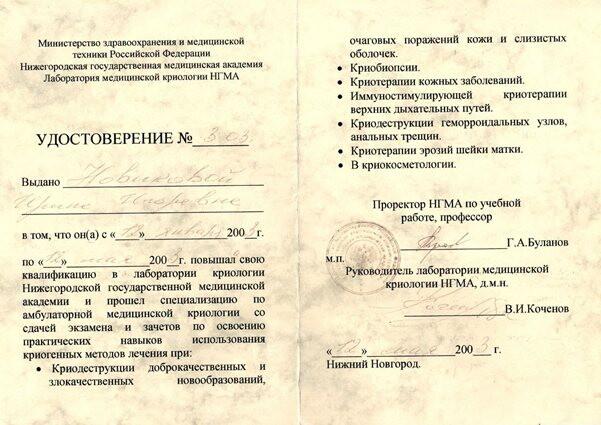 Министерство здравоохранения и медицинской
техники Российской Федерации
Нижегородская государственная медицинская академия
Лаборатория медицинской криологии НГМА
УДОСТОВЕРЕНИЕ № 303
Выдано Новиковой
Ирине Игоревне
в том, что он(а) с «12» января 2003 г.
по «12» мая 2003 г. повышал свою
квалификацию в лаборатории криологии
Нижегородской государственной медицинской
академии и прошел специализацию по
амбулаторной медицинской криологии со
сдачей экзамена и зачетов по освоению
практических навыков использования
криогенных методов лечения при:
• Криодеструкции доброкачественных и
злокачественных новообразований,
очаговых поражений кожи и слизистых
оболочек.
• Криобиопсии.
• Криотерапии кожных заболеваний.
• Иммуностимулирующей криотерапии
верхних дыхательных путей.
• Криодеструкции геморроидальных узлов,
анальных трещин.
• Криотерапии эрозий шейки матки.
• В криокосметологии.
Проректор НГМА по учебной
работе, профессор
Г.А.Буланов
м.п.
Руководитель лаборатории медицинской
криологии НГМА, д.м.н.
В.И.Коченов
«12» мая 2003 г.
Нижний Новгород.